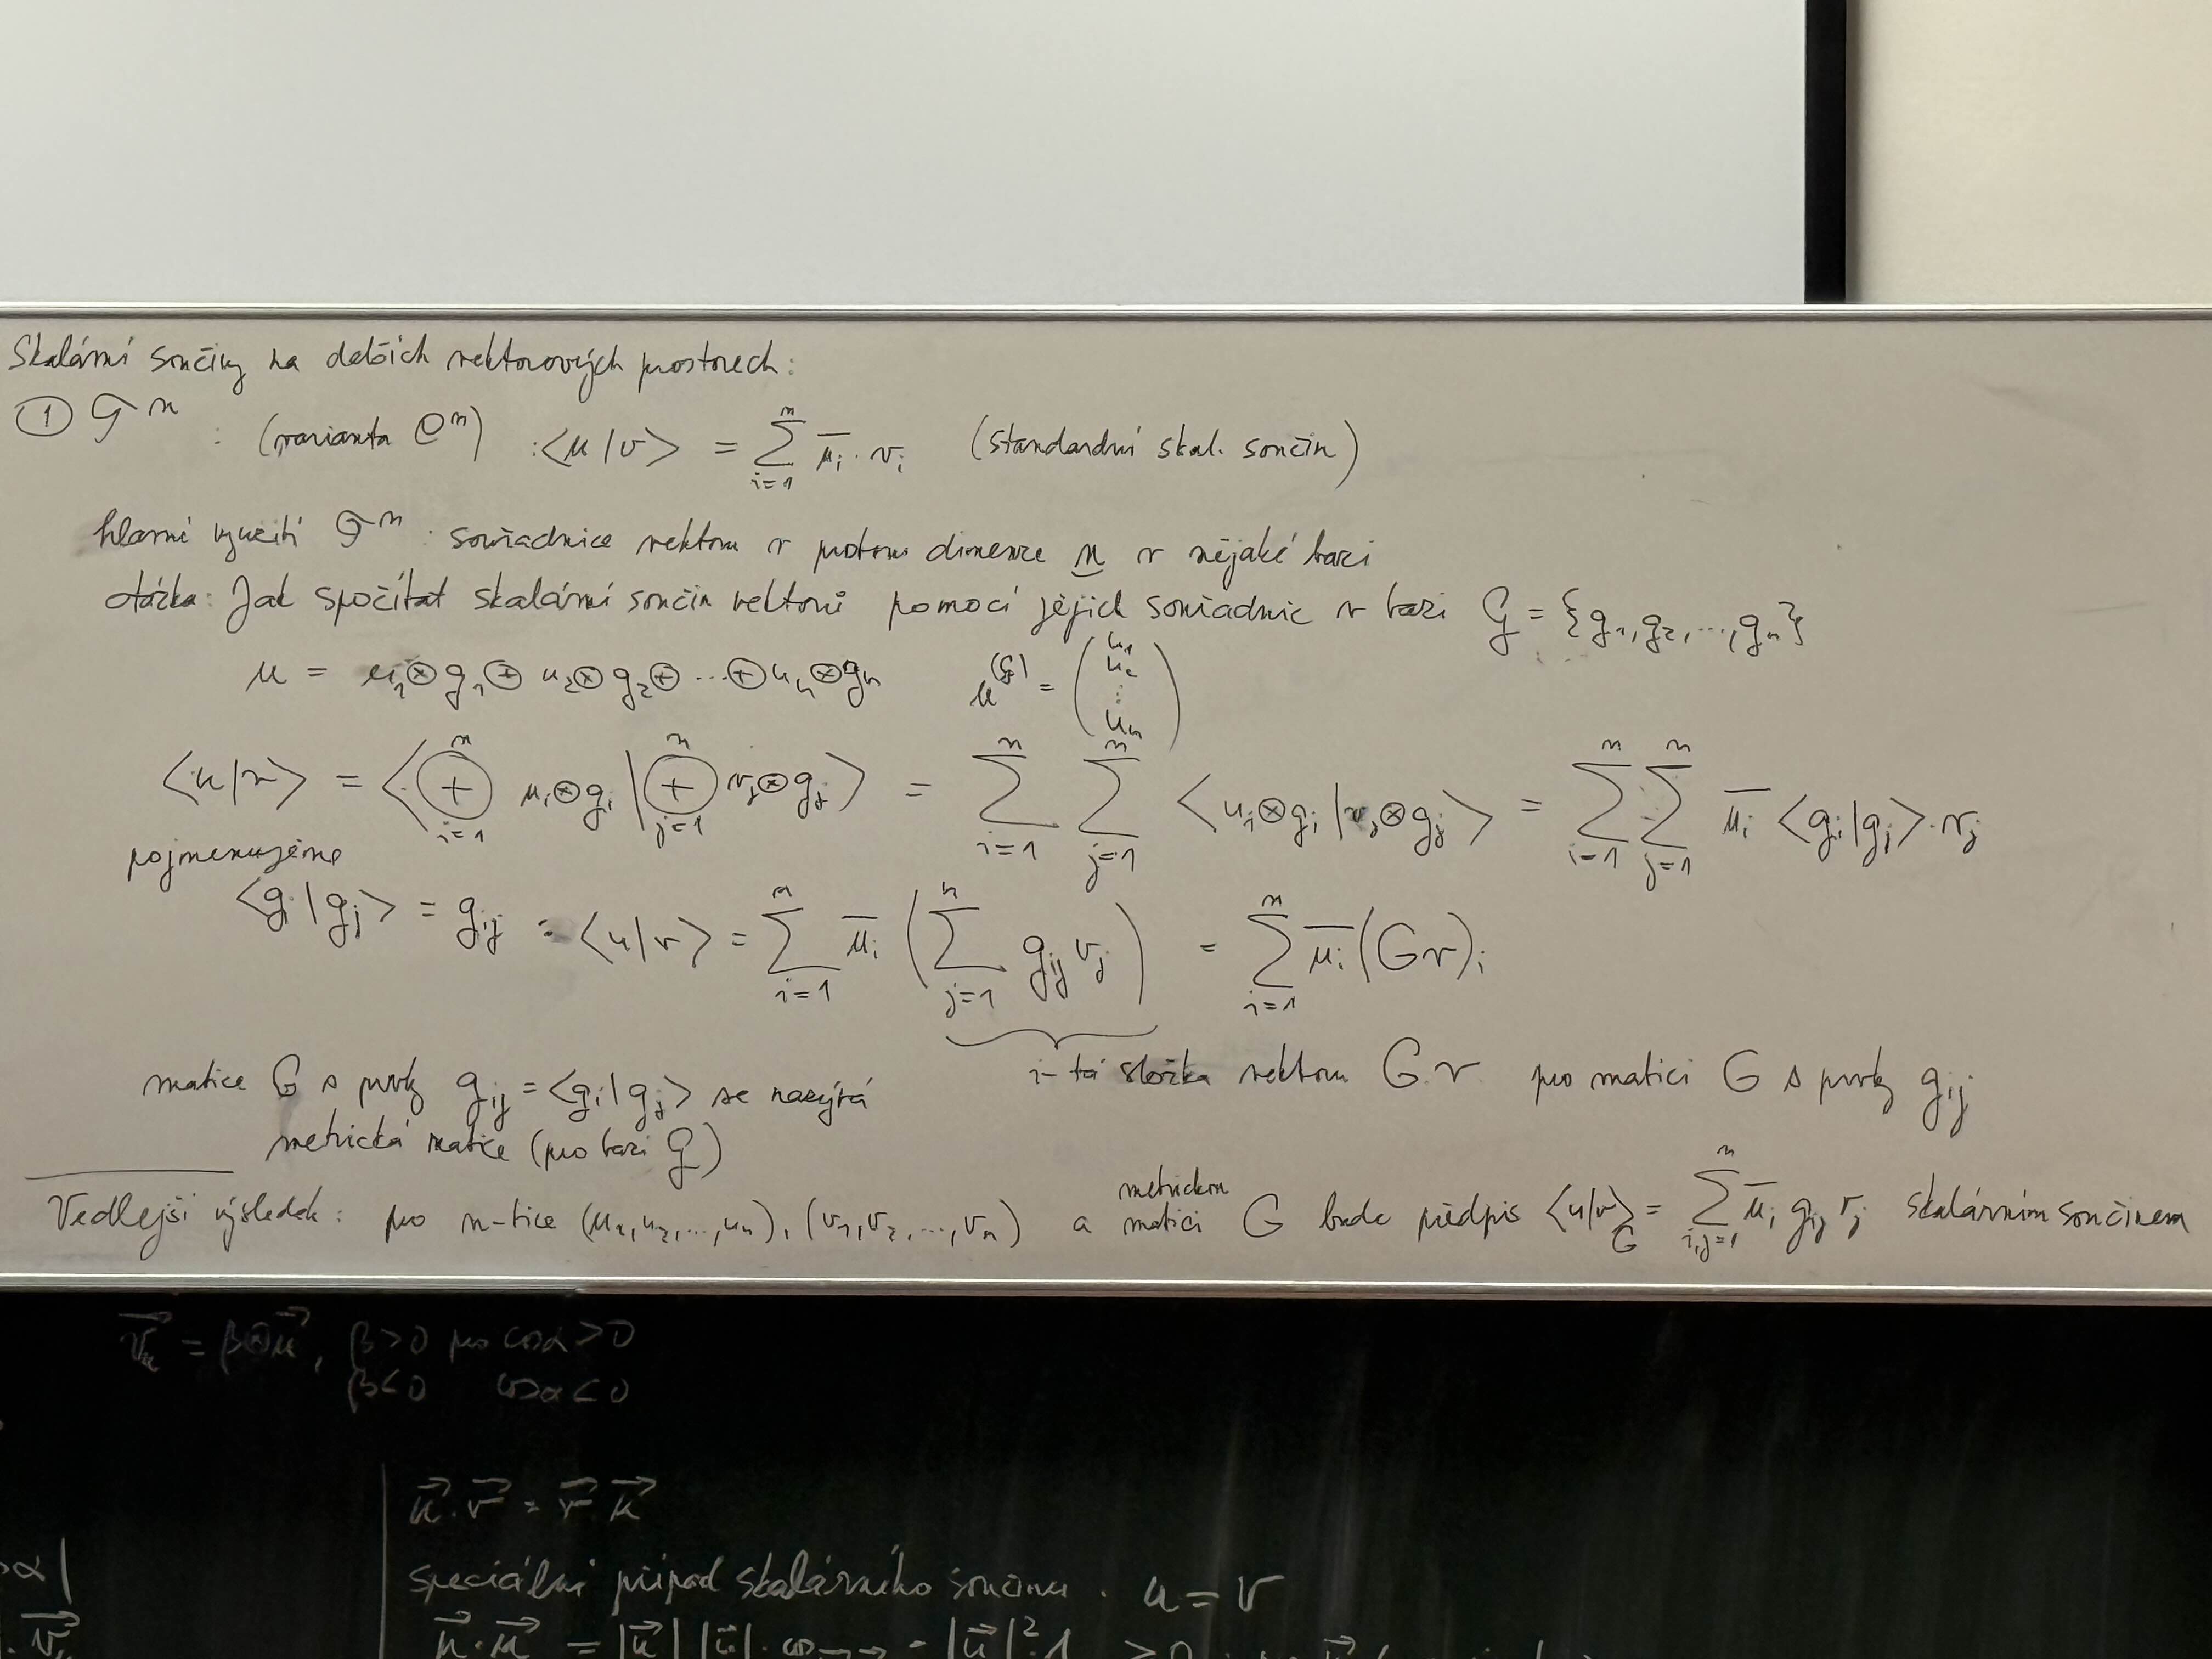 Skalární součiny na dalších vektorových prostorech:
① 𝒯ⁿ : (varianta 𝒞ⁿ) : <u|v> = ∑_{i=1}^{n} ū_i · v_i (standardní skal. součin)
hlavní využití 𝒯ⁿ : souřadnice vektoru v prostoru dimenze n v nějaké bazi
otázka: Jak spočítat skalární součin vektorů pomocí jejich souřadnic v bazi G = {g₁, g₂, ..., gₙ}
u = u₁⊗g₁ ⊕ u₂⊗g₂ ⊕ ... ⊕ uₙ⊗gₙ u^(G) = (u₁ u₂ ⋮ uₙ)
<u|v> = <⊕_{i=1}^{n} u_i⊗g_i | ⊕_{j=1}^{n} v_j⊗g_j> = ∑_{i=1}^{n} ∑_{j=1}^{n} <u_i⊗g_i | v_j⊗g_j> = ∑_{i=1}^{n} ∑_{j=1}^{n} ū_i <g_i|g_j> · v_j
pojmenujeme
<g_i|g_j> = g_ij : <u|v> = ∑_{i=1}^{n} ū_i (∑_{j=1}^{n} g_ij v_j) = ∑_{i=1}^{n} ū_i (Gv)_i
i-tá složka vektoru G.v pro matici G s prvky g_ij
matice G s prvky g_ij = <g_i|g_j> se nazývá
metrická matice (pro bazi G)
Vedlejší výsledek: pro n-tice (u₁, u₂, ..., uₙ), (v₁, v₂, ..., vₙ) a metrickou matici G bude předpis <u|v>_G = ∑_{i,j=1}^{n} ū_i g_ij v_j skalárním součinem
v⃗_u = β⊗u⃗, β>0 pro cosα>0
β<0 cosα<0
u⃗.v⃗ = v⃗.u⃗
speciální případ skalárního součinu. u = v
α|
. v⃗_u
u⃗.u⃗ = |u⃗| |u⃗|. cos = |u⃗|².1 ≥ 0